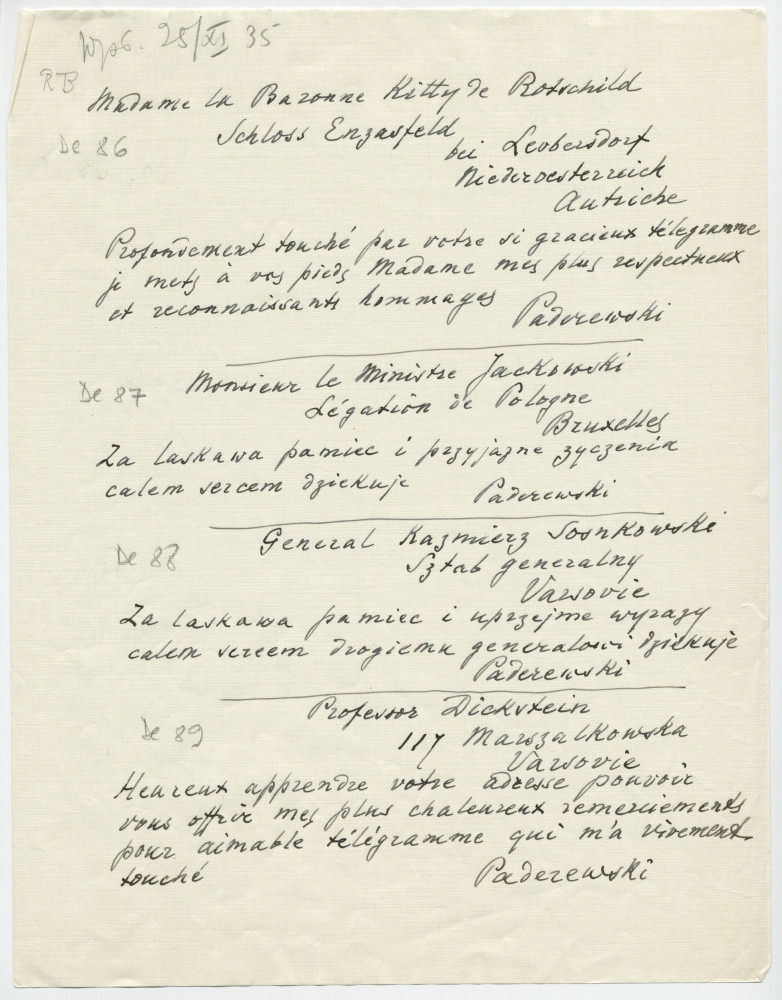 Wys. 28/XI 35
RB
Madame la Baronne Kitty de Rotschild
De 86
Schloss Enzasfeld
bei Leobersdorf
Niederoesterreich
Autriche
Profondement touché par votre si gracieux télegramme
je mets à vos pieds Madame mes plus respectueux
et reconnaissants hommages
Paderewski
De 87
Monsieur le Ministre Jackowski
Légation de Pologne
Bruxelles
Za laskawa pamiec i przyjazne zyczenia
calem sercem dziekuje
Paderewski
De 88
General Kazmierz Sosnkowski
Sztab generalny
Varsovie
Za laskawa pamiec i uprzejme wyrazy
calem sercem drogiemu generalowi dziekuje
Paderewski
De 89
Professor Dickstein
117 Marszalkowska
Varsovie
Heureux apprendre votre adresse pouvoir
vous offrir mes plus chaleureux remerciements
pour aimable télégramme qui m'a vivement
touché
Paderewski